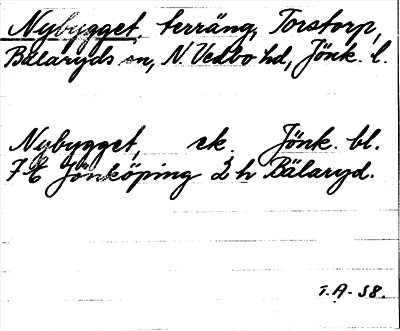 Nybygget, terräng, Torstorp,
Bälaryds sn, N. Vedbo hd, Jönk. l.
Nybygget, ek. Jönk. bl.
7E Jönköping 2h Bälaryd.
T.A. 58.